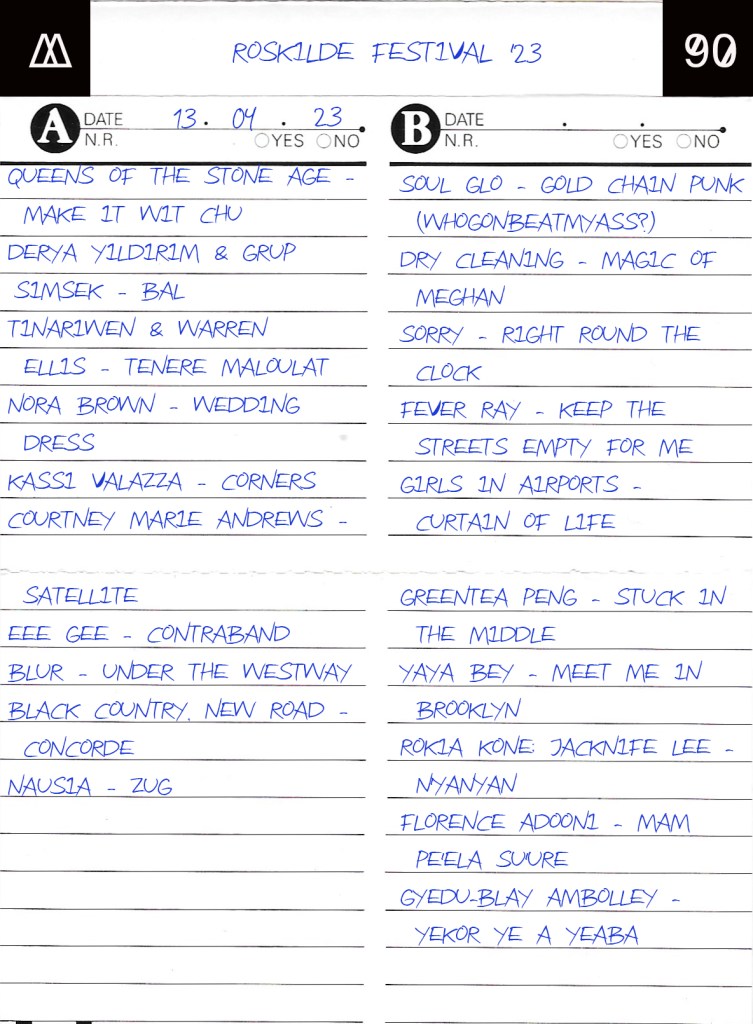 ROSKILDE FESTIVAL '23
90
A DATE 13. 04. 23
N.R. YES NO
QUEENS OF THE STONE AGE -
MAKE IT WIT CHU
DERYA YILDIRIM & GRUP
SIMSEK - BAL
TINARIWEN & WARREN
ELLIS - TENERE MALOULAT
NORA BROWN - WEDDING
DRESS
KASSI VALAZZA - CORNERS
COURTNEY MARIE ANDREWS -
SATELLITE
EEE GEE - CONTRABAND
BLUR - UNDER THE WESTWAY
BLACK COUNTRY, NEW ROAD -
CONCORDE
NAUSIA - ZUG
B DATE . .
N.R. YES NO
SOUL GLO - GOLD CHAIN PUNK
(WHOGONBEATMYASS?)
DRY CLEANING - MAGIC OF
MEGHAN
SORRY - RIGHT ROUND THE
CLOCK
FEVER RAY - KEEP THE
STREETS EMPTY FOR ME
GIRLS IN AIRPORTS -
CURTAIN OF LIFE
GREENTEA PENG - STUCK IN
THE MIDDLE
YAYA BEY - MEET ME IN
BROOKLYN
ROKIA KONE; JACKNIFE LEE -
NYANYAN
FLORENCE ADOONI - MAM
PE'ELA SU'URE
GYEDU-BLAY AMBOLLEY -
YEKOR YE A YEABA